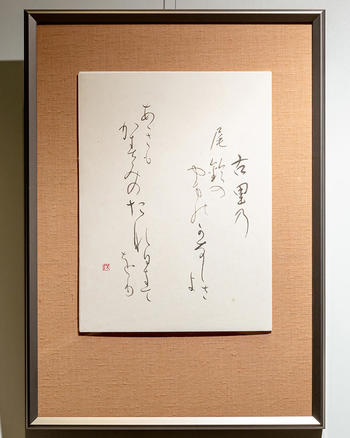 古里乃
尾鈴の
やまのかなしさ
よ
あきも
かすみのたなひきて
をり